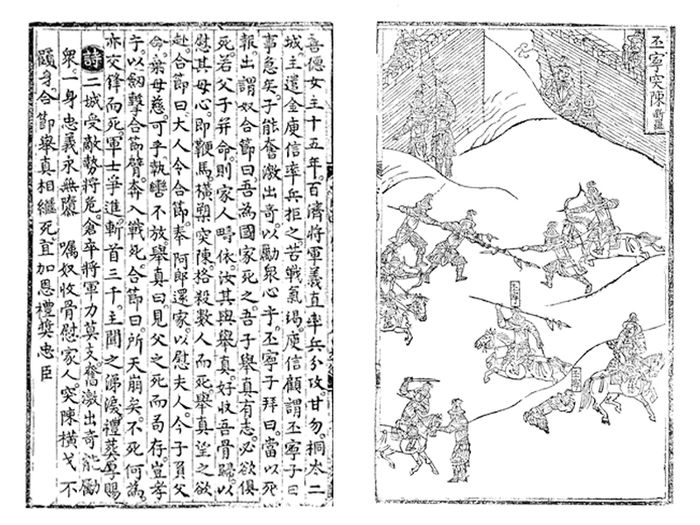 丕寧突陳 新羅
善德女主十五年百濟將軍義直率兵分攻甘勿桐岑二
城主遣金庾信率兵拒之苦戰氣竭庾信顧謂丕寧子曰
事急矣子能奮激出奇以勵衆心乎丕寧子拜曰當以死
報出謂奴合節曰吾為國家死之吾子舉真有志必欲俱
死若父子并命則家人疇依汝其與舉真好收吾骨歸以
慰其母心即鞭馬橫槊突陳格殺數人而死舉真望之欲
赴合節曰大人令合節奉阿郎還家以慰夫人今子負父
命棄母慈可乎執轡不放舉真曰見父之死而苟存豈孝
子以劒擊合節臂奔入戰死合節曰所天崩矣不死何為
亦交鋒而死軍士爭進斬首三千主聞之涕淚禮葬厚賜
詩 二城受敵勢將危倉卒將軍力莫支奮激出奇能勵
衆一身忠義永無隳 囑奴收骨慰家人突陳橫戈不
顧身合節舉真相繼死宜加恩禮奬忠臣